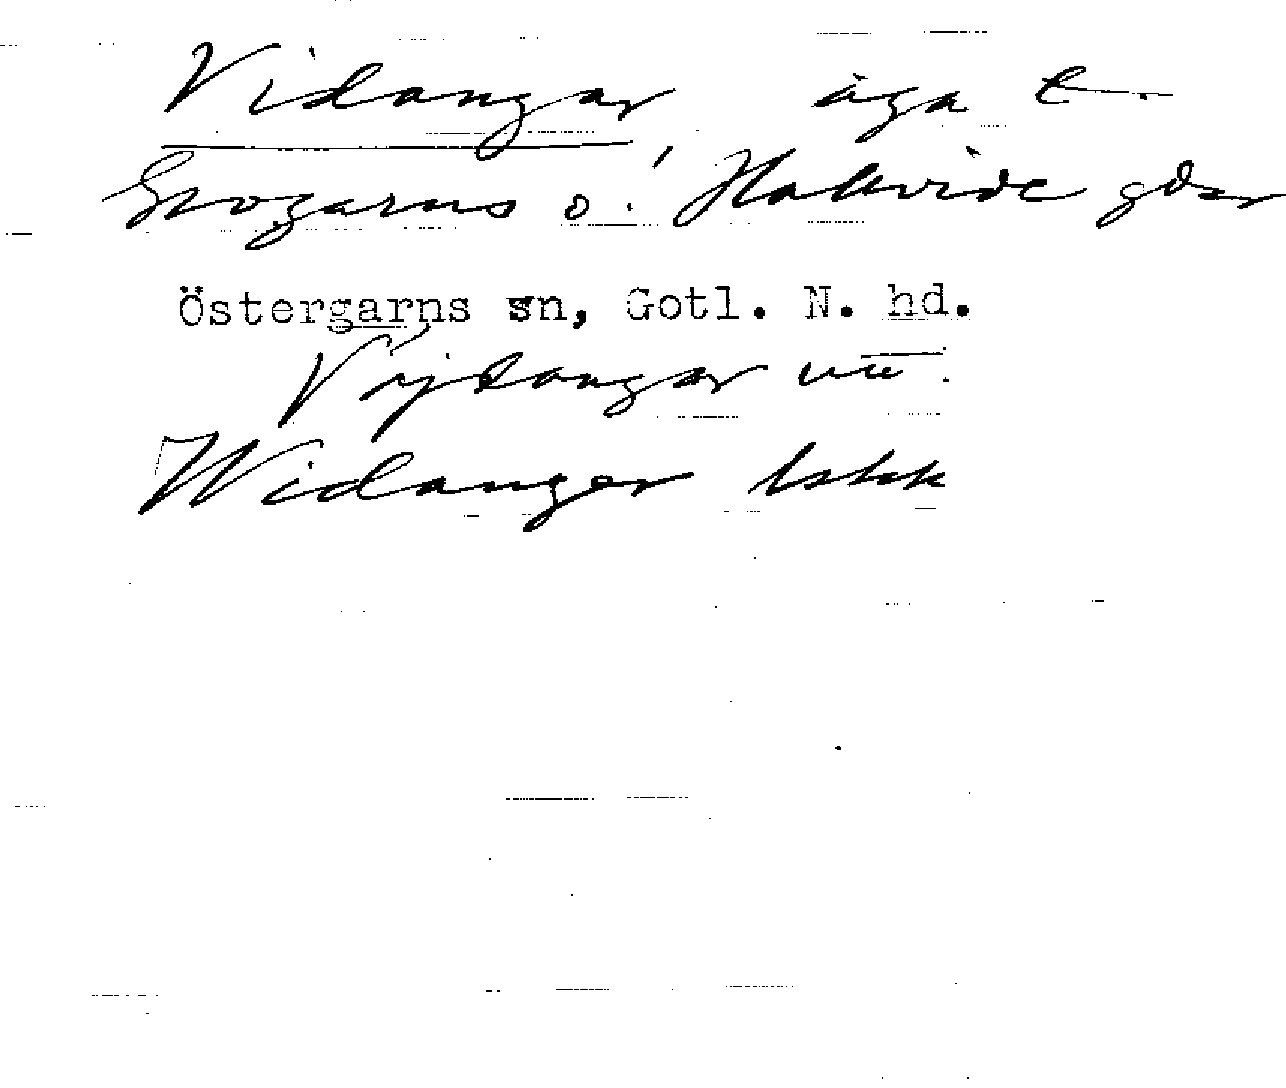 Vidangar äga t.
Grogarns o. Hallvide gdar
Östergarns sn, Gotl. N. hd.
Vijdangar
Widanger lskk